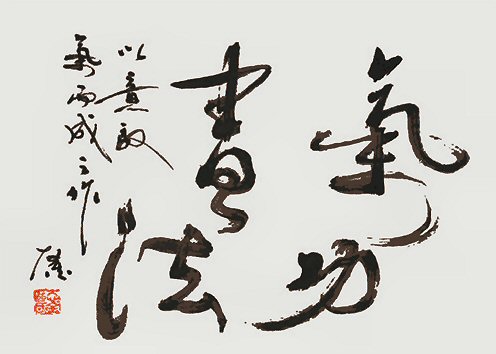 氣功
書法
以意啟
氣而成之作